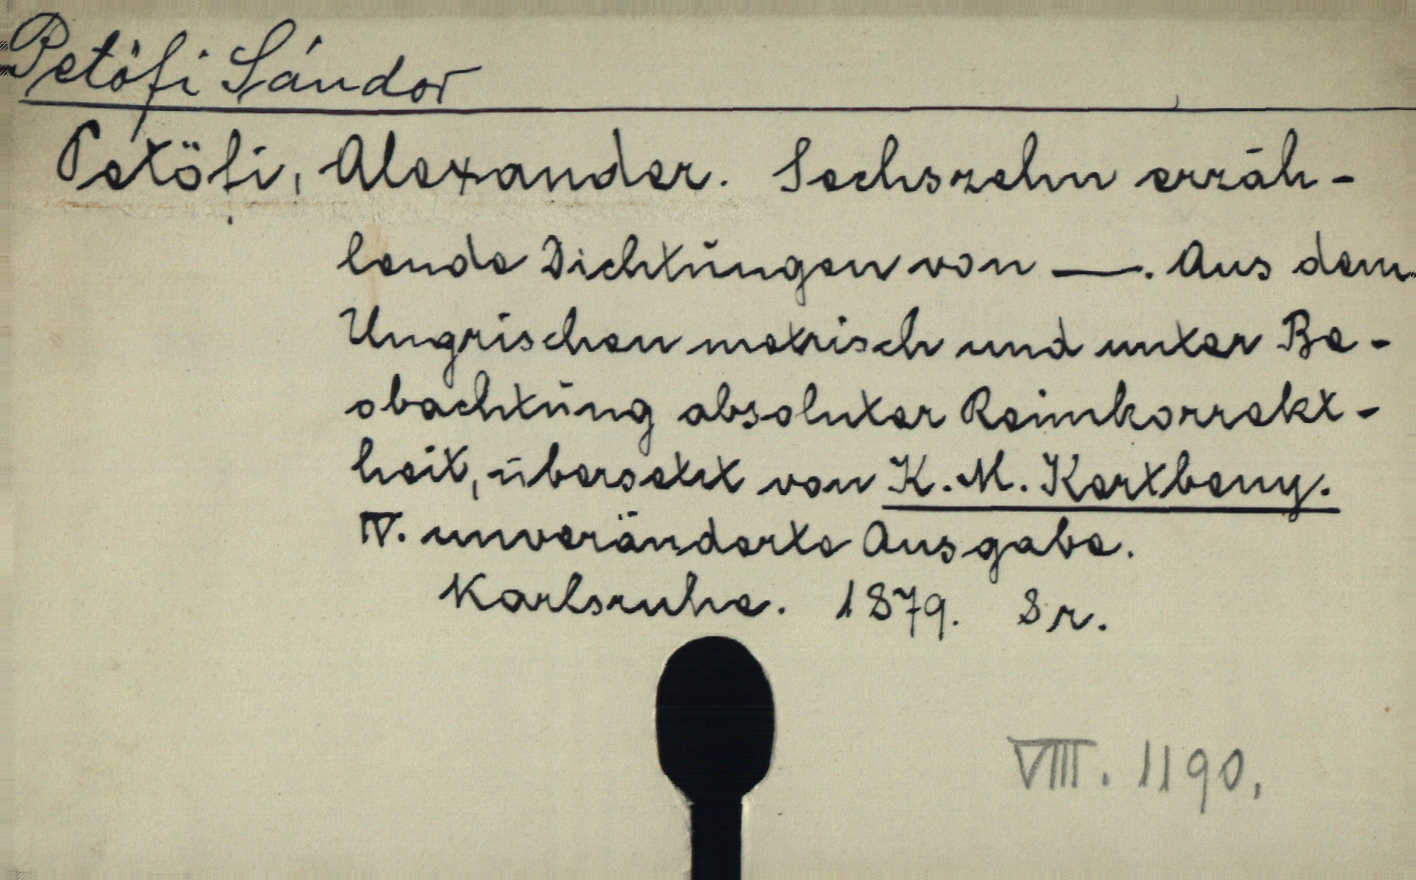 Petőfi Sándor
Petöfi, Alexander. Sechszehn erzäh-
lende Dichtŭngen von —. Aus dem
Ungrischen metrisch und unter Be-
obachtŭng absoluter Reimkorrekt-
heit, übersetzt von K. M. Kertbeny.
IV. unveränderte Ausgabe.
Karlsruhe. 1879. 8r.
VIII. 1190.